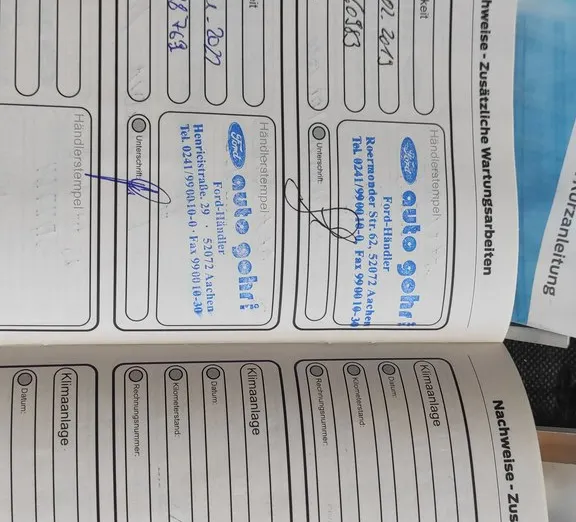 chweise - Zusätzliche Wartungsarbeiten
keit
02. 2019
60983
Händlerstempel
Ford auto gohr!
Ford-Händler
Roermonder Str. 62, 52072 Aachen
Tel. 0241/990010-0, Fax 990010-30
Unterschrift:
it
2011
8769
Händlerstempel
Ford auto gohr!
Ford-Händler
Henricistraße. 29 · 52072 Aachen
Tel. 0241/990010-0 · Fax 990010-30
Unterschrift:
Händlerstempel
Kurzanleitung
Nachweise - Zus
Klimaanlage
Datum:
Kilometerstand:
Rechnungsnummer:
Klimaanlage
Datum:
Kilometerstand:
Rechnungsnummer:
Klimaanlage
Datum: